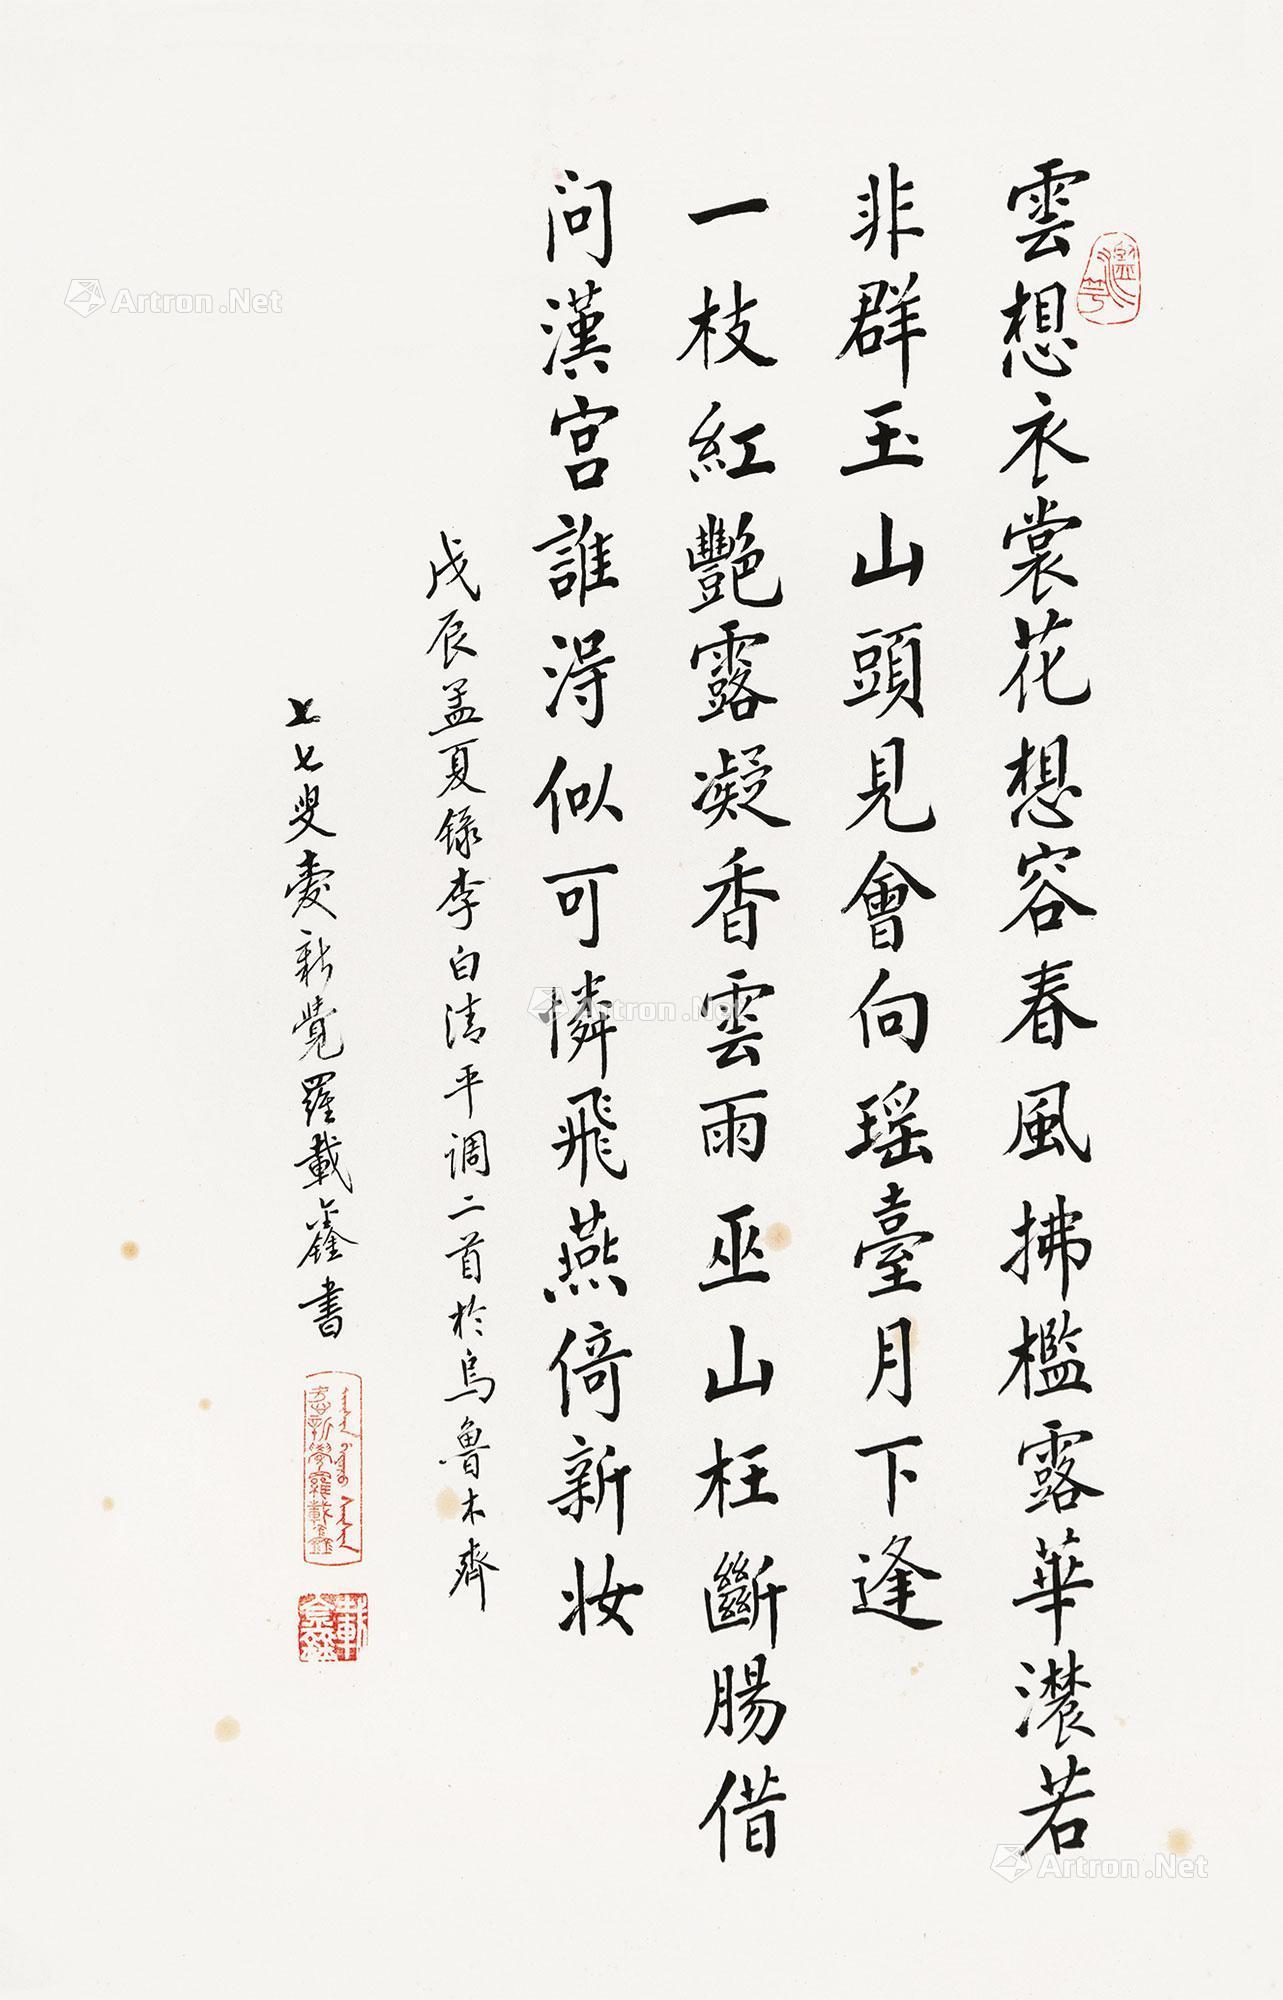 雲想衣裳花想容春風拂檻露華濃若
非群玉山頭見會向瑤臺月下逢
一枝紅艷露凝香雲雨巫山枉斷腸借
问漢宮誰得似可憐飛燕倚新妝
戊辰孟夏錄李白清平调二首於烏魯木齊
七七叟愛新覺羅載鑫書
愛新覺羅載鑫
Artron.Net
Artron.Net
Artron.Net